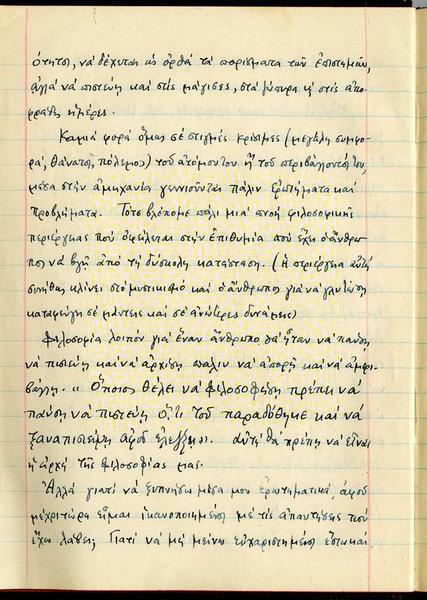 ότητος, να δέχεται ως ορθά τα πορίσματα των επιστημών,
αλλά να πιστεύη και στις μάγισσες, στα γούρια κ' στις αποφράδες
ημέρες.
Καμιά φορά όμως σε στιγμές κρίσιμες (μεγάλη συμφορά,
θάνατος, πόλεμος) του ατόμου του ή του περιβάλλοντός του,
μέσα στην αμηχανία γεννιούνται πάλιν ερωτήματα και
προβλήματα. Τότε βλέπομε πάλι μια πνοή φιλοσοφικής
περιέργειας που οφείλεται στην επιθυμία που έχει ο άνθρωπος
να βγη από τη δύσκολη κατάσταση. (Η περιέργεια αυτή
συνήθως κλίνει στο μυστικισμό και ο άνθρωπος για να γλυτώση
καταφεύγει σε μάντεις και σε ανώτερες δυνάμεις)
Φιλοσοφία λοιπόν για έναν άνθρωπο θα ήταν να παύση
να πιστεύη και να αρχίση πάλιν να απορή και να αμφιβάλλη.
« Όποιος θέλει να φιλοσοφήση πρέπει να
παύση να πιστεύη ό,τι του παραδόθηκε και να
ξαναπιστέψη αφού ελέγξη». αυτή θα πρέπη να είναι
η αρχή της φιλοσοφίας μας.
Αλλά γιατί να ξυπνήσω μέσα μου ερωτηματικά, αφού
μέχρι τώρα είμαι ικανοποιημένος με τις απαντήσεις που
έχω λάβει; Γιατί να μη μείνω ευχαριστημένος έστω και